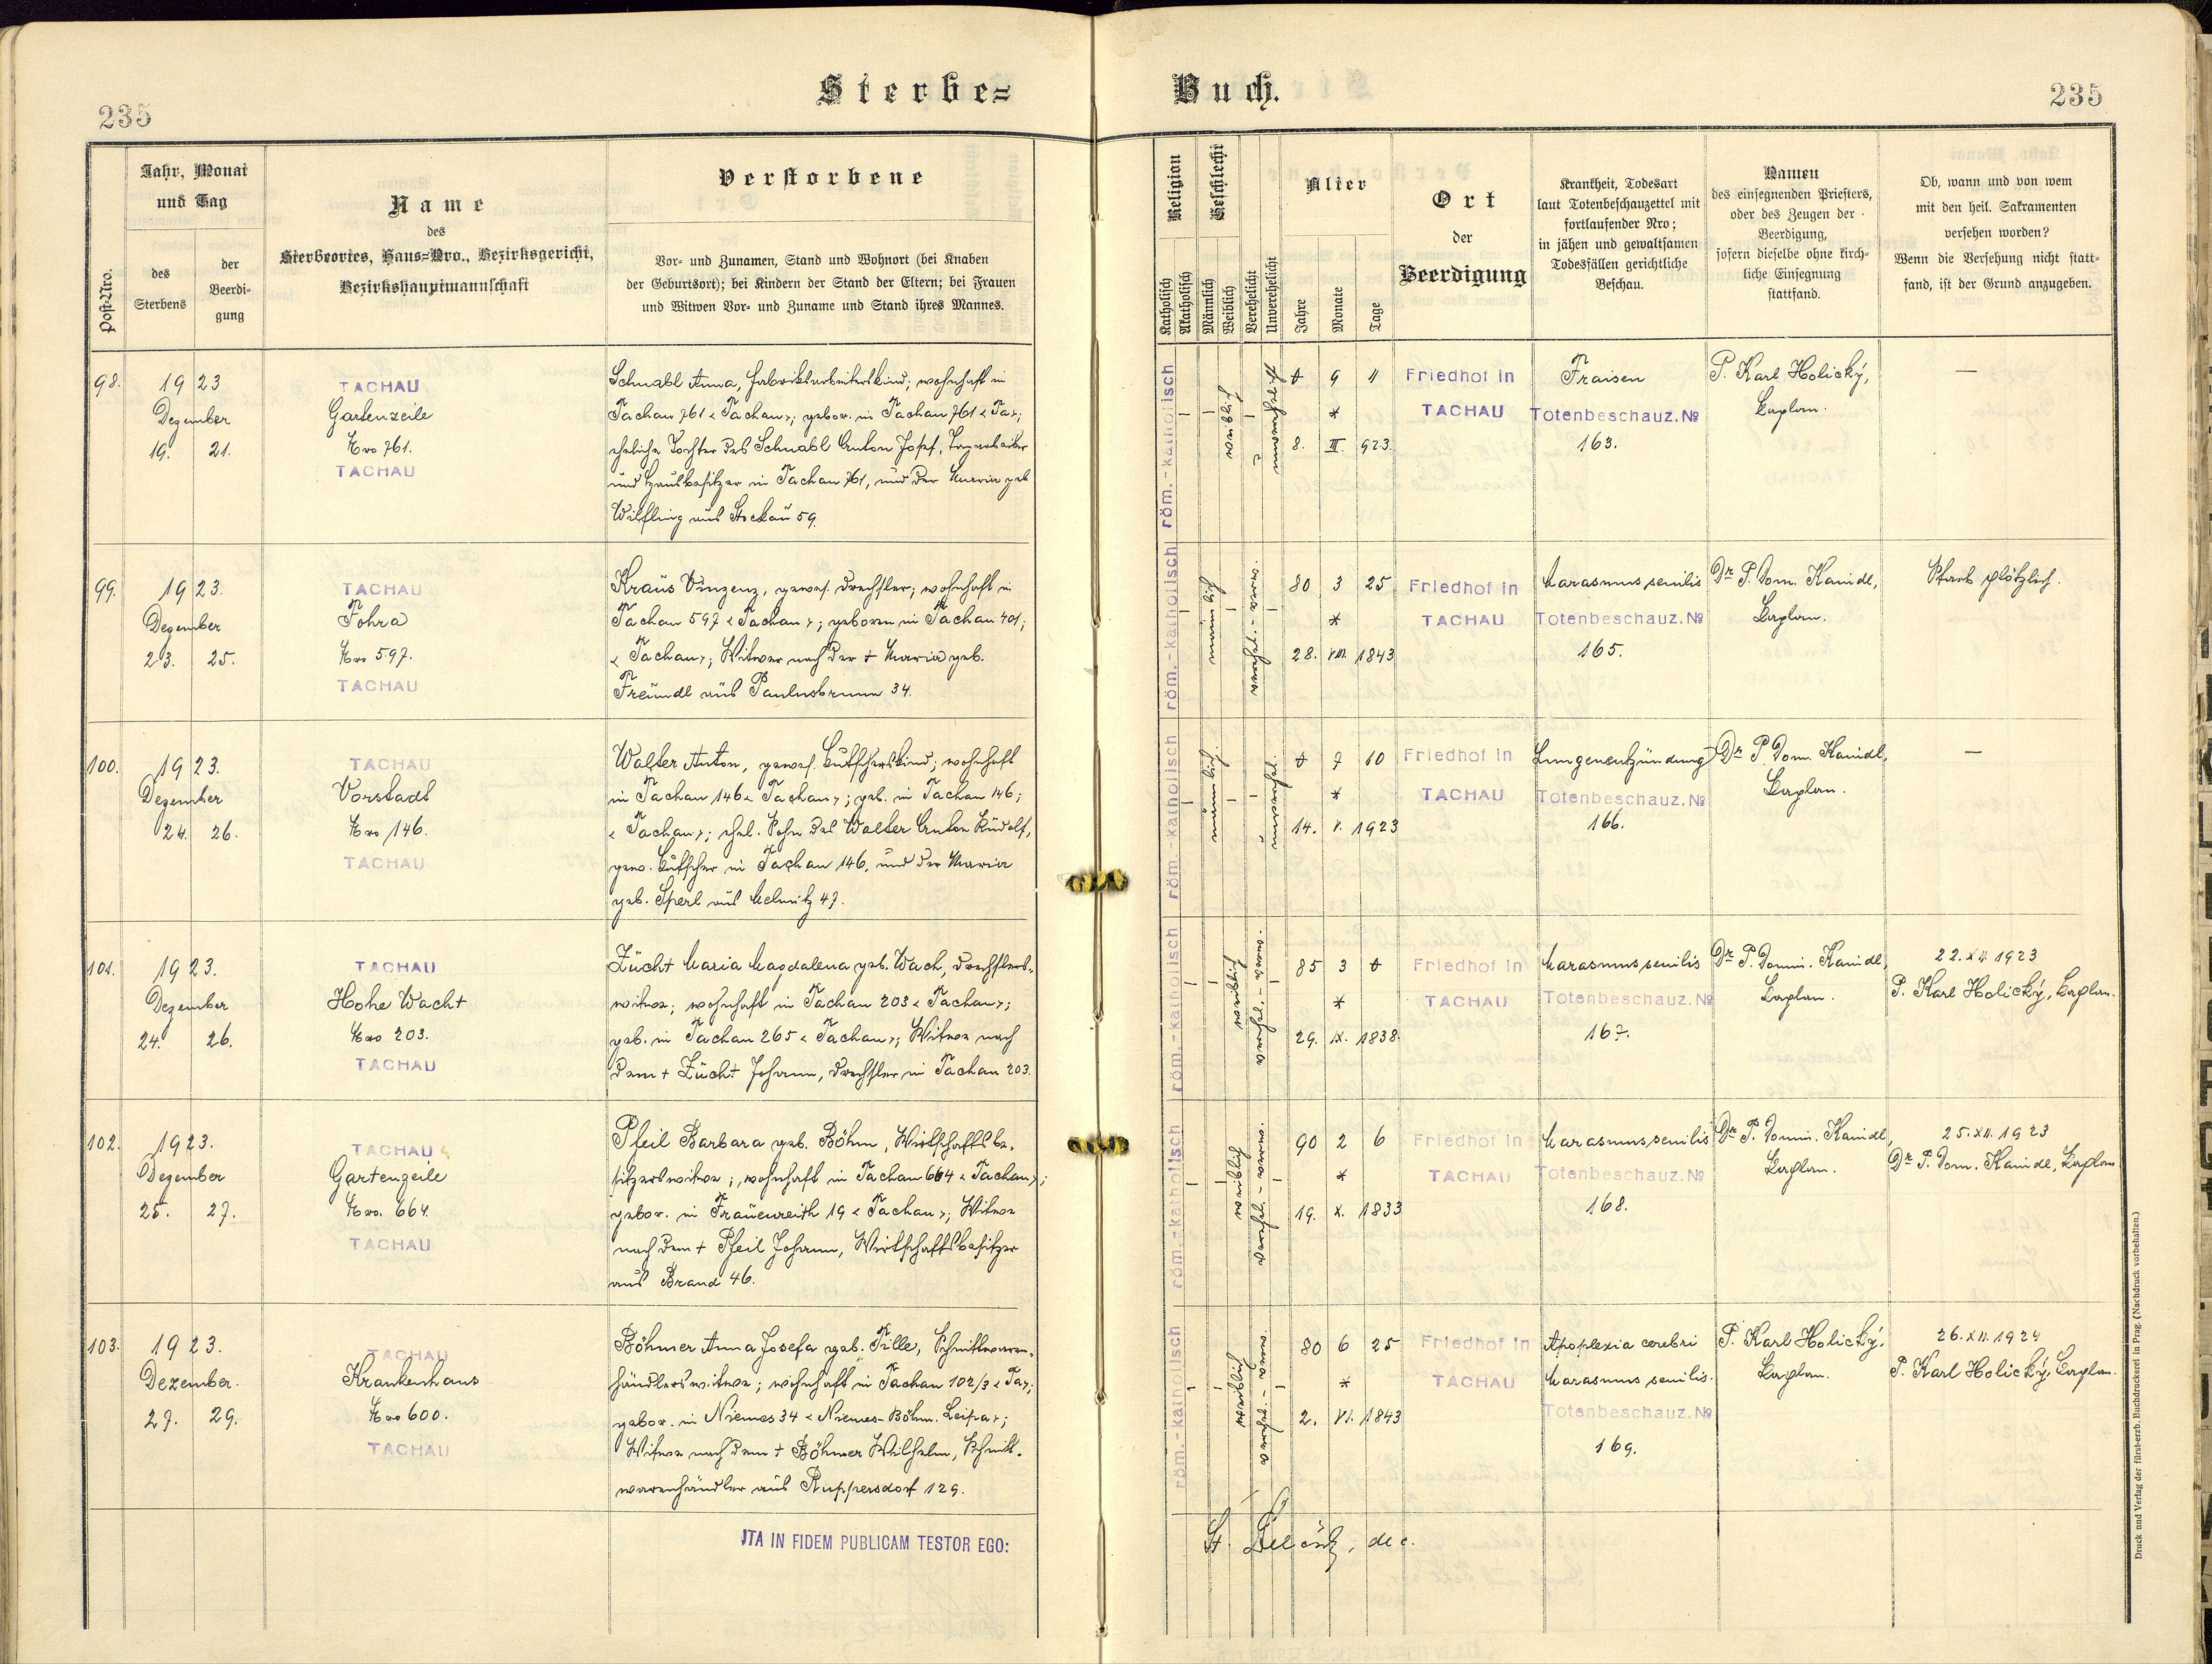 235
Sterbe=
Buch.
235
Post-Nro.
Jahr, Monat und Tag
des Sterbens
der Beerdi-gung
Name
des
Sterbeortes, Haus=Nro., Bezirksgericht,
Bezirkshauptmannschaft
Verstorbene
Vor- und Zunamen, Stand und Wohnort (bei Knaben
der Geburtsort); bei Kindern der Stand der Eltern; bei Frauen
und Witwen Vor- und Zuname und Stand ihres Mannes.
Religion
Katholisch
Akatholisch
Geschlecht
Männlich
Weiblich
Verehelicht
Unverehelicht
Alter
Jahre
Monate
Tage
Ort
der
Beerdigung
Krankheit, Todesart
laut Totenbeschauzettel mit
fortlaufender Nro;
in jähen und gewaltsamen
Todesfällen gerichtliche
Beschau.
Namen
des einsegnenden Priesters,
oder des Zeugen der
Beerdigung,
sofern dieselbe ohne kirch-
liche Einsegnung
stattfand.
Ob, wann und von wem
mit den heil. Sakramenten
versehen worden?
Wenn die Versehung nicht statt-
fand, ist der Grund anzugeben.
98.
1923
Dezember
19. 21.
TACHAU
Gartenzeile
Nro 761.
TACHAU
Schnabl Anna, Fabriksarbeiterskind; wohnhaft in
Tachau 761 < Tachau >; gebor. in Tachau 761 < Ta >;
eheliche Tochter des Schnabl Anton Josef,
und Hausbesitzer in Tachau 761, und der Maria geb.
Wilfling aus Stockau 59.
röm.-katholisch
weiblich
9 11
*
8. III. 923.
Friedhof in
TACHAU
Fraisen
Totenbeschauz. №
163.
P. Karl Holický,
Kaplan.
—
99.
1923.
Dezember
23. 25.
TACHAU
Fohra
Nro 597.
TACHAU
Kraus Vinzenz, gewes. Drechsler; wohnhaft in
Tachau 597 < Tachau >; geboren in Tachau 401;
< Tachau >; Witwer nach der + Maria geb.
Freundl aus Paulusbrunn 34.
röm.-katholisch
männlich
80 3 25
*
28. VIII. 1843
Friedhof in
TACHAU
Marasmus senilis
Totenbeschauz. №
165.
Dr P. Dom. Kaindl,
Kaplan.
Starb plötzlich.
100.
1923.
Dezember
24. 26.
TACHAU
Vorstadt
Nro 146.
TACHAU
Walter Anton, gewes. Kutscherskind; wohnhaft
in Tachau 146 < Tachau >; geb. in Tachau 146;
< Tachau >; ehel. Sohn des Walter Anton Rudolf,
gew. Kutscher in Tachau 146, und der Maria
geb. Sperl aus Melmitz 47.
röm.-katholisch
männlich
7 10
*
14. V. 1923
Friedhof in
TACHAU
Lungenentzündung
Totenbeschauz. №
166.
Dr P. Dom. Kaindl,
Kaplan.
—
101.
1923.
Dezember
24. 26.
TACHAU
Hohe Wacht
Nro 203.
TACHAU
Zücht Maria Magdalena geb. Wach, Drechslers-
witwe; wohnhaft in Tachau 203 < Tachau >;
geb. in Tachau 265 < Tachau >; Witwe nach
dem + Zücht Johann, Drechsler in Tachau 203.
röm.-katholisch
weiblich
85 3
*
29. IX. 1838.
Friedhof in
TACHAU
Marasmus senilis
Totenbeschauz. №
167.
Dr P. Domin. Kaindl,
Kaplan.
22. XII 1923
P. Karl Holický, Kaplan.
102.
1923.
Dezember
25. 27.
TACHAU
Gartenzeile
Nro. 664.
TACHAU
Pfeil Barbara geb. Böhm, Wirtschaftsbe-
sitzerswitwe; wohnhaft in Tachau 664 < Tachau >;
gebor. in Frauenreith 19 < Tachau >; Witwe
nach dem + Pfeil Johann, Wirtschaftsbesitzer
aus Brand 46.
röm.-katholisch
weiblich
90 2 6
*
19. X. 1833
Friedhof in
TACHAU
Marasmus senilis
Totenbeschauz. №
168.
Dr P. Domin. Kaindl,
Kaplan.
25. XII. 1923
Dr P. Dom. Kaindl, Kaplan
103.
1923.
Dezember.
27. 29.
TACHAU
Krankenhaus
Nro 600.
TACHAU
Böhmer Anna Josefa geb. Tille, Schnittwaren-
händlerswitwe; wohnhaft in Tachau 102/3 < Ta >;
gebor. in Niemes 34 < Niemes-Böhm. Leipa >;
Witwe nach dem + Böhmer Wilhelm, Schnitt-
warenhändler aus Ruppersdorf 129.
röm.-katholisch
weiblich
80 6 25
*
2. VI. 1843
Friedhof in
TACHAU
Apoplexia cerebri
Marasmus senilis.
Totenbeschauz. №
169.
P. Karl Holický,
Kaplan.
26. XII. 1924
P. Karl Holický, Kaplan.
ITA IN FIDEM PUBLICAM TESTOR EGO:
Druck und Verlag der fürst-erzb. Buchdruckerei in Prag. (Nachdruck vorbehalten.)